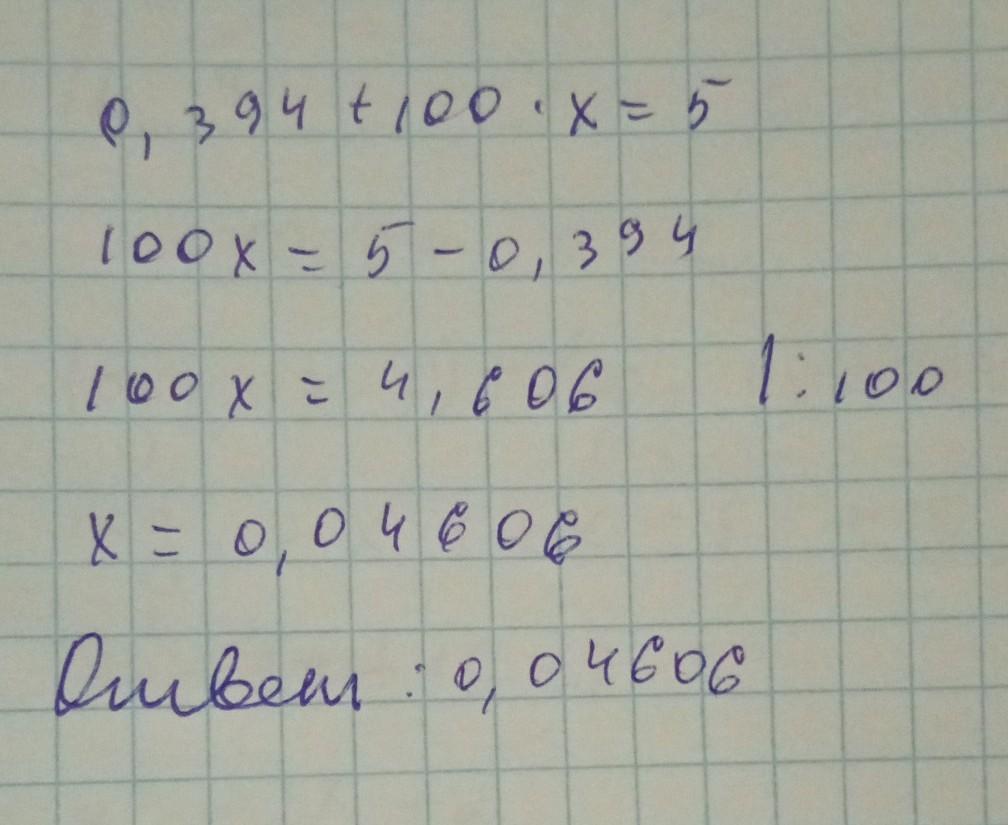 0,394 + 100 · x = 5
100x = 5 - 0,394
100x = 4,606 |:100
x = 0,04606
Ответ: 0,04606